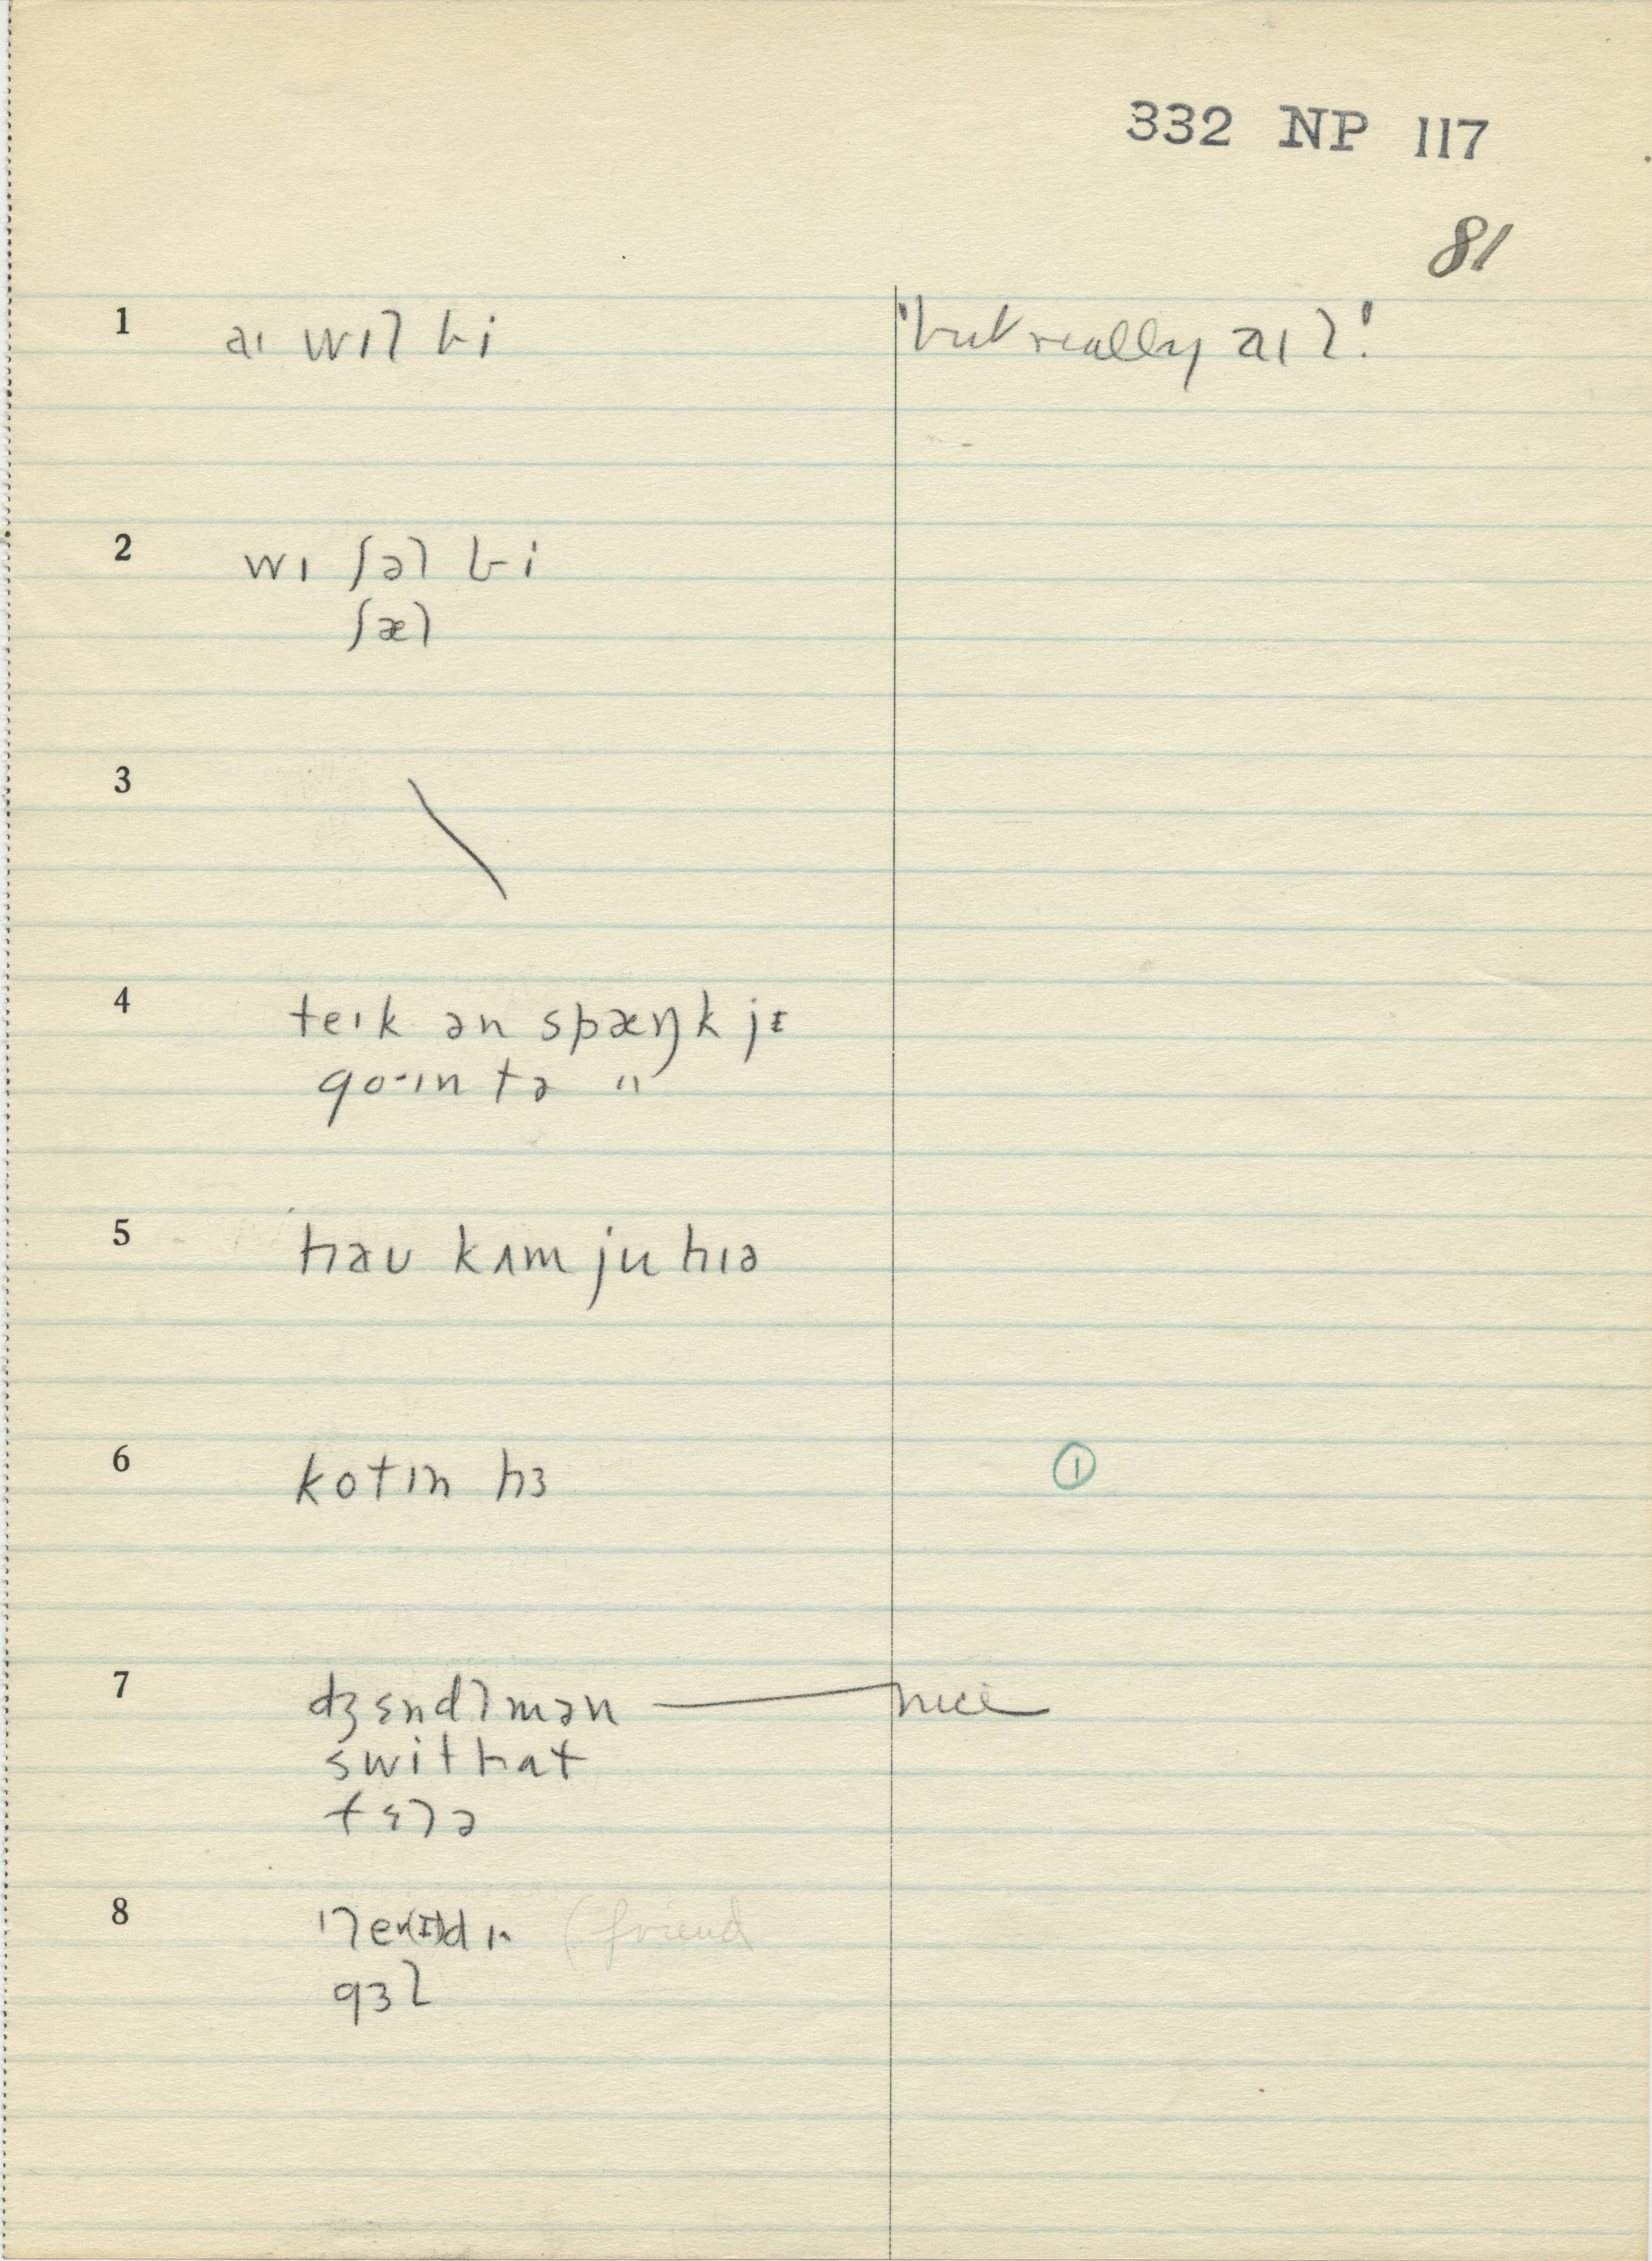 332 NP 117
81
1 aɪ wɪl bi 'but really aɪl.'
2 wɪ ʃəl bi
ʃæl
3
4 teɪk ən spæŋk jɪ
go·ɪn tə "
5 haʊ kʌm ju hɪə
6 kotɪn hɜ ①
7 dʒɛndlmən — nice
swithat
fɛlə
8 (friend
gɜl